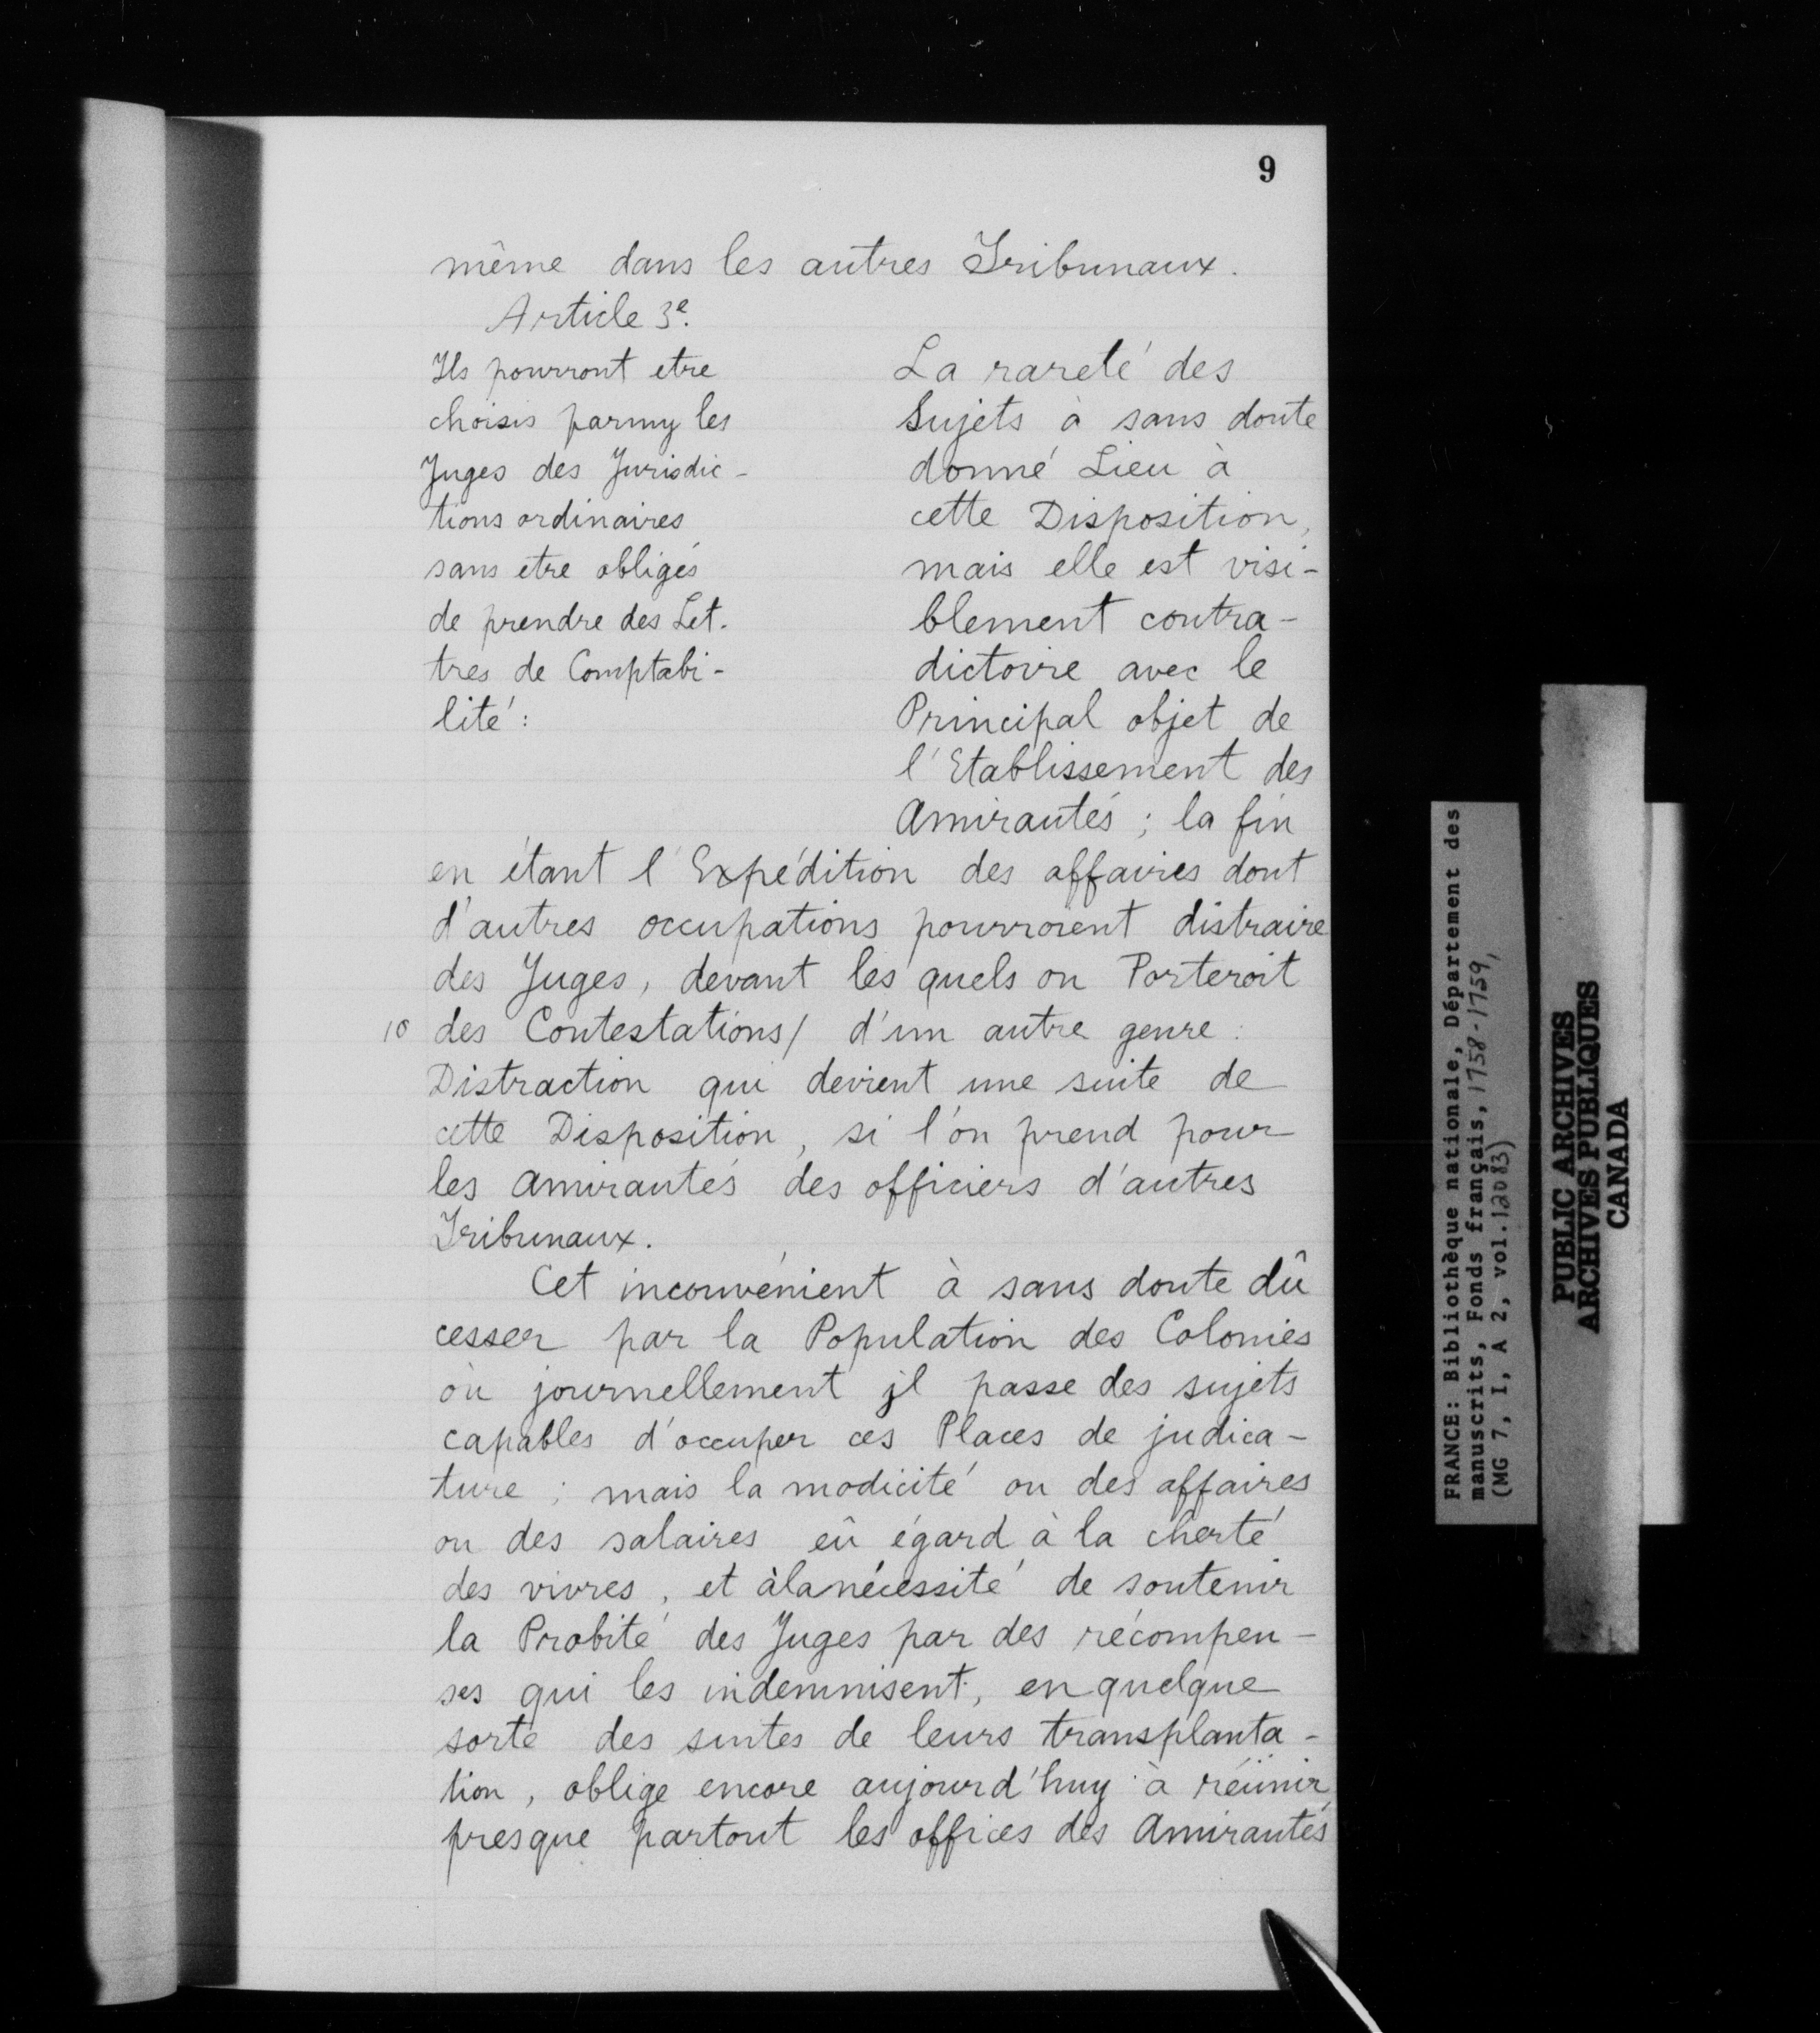 9
même dans les autres Tribunaux.
Article 3e.
Ils pourront etre
choisis parmy les
Juges des Jurisdic-
tions ordinaires
sans etre obligés
de prendre des Let.
tres de Comptabi-
lité:
La rareté des
Sujets à sans doute
donné Lieu à
cette Disposition,
mais elle est visi-
blement contra-
dictoire avec le
Principal objet de
l'Etablissement des
Amirautés ; la fin
en étant l'Expédition des affaires dont
d'autres occupations pourroient distraire
des Juges, devant les quels on Porteroit
10 des Contestations/ d'un autre genre :
Distraction qui devient une suite de
cette Disposition, si l'on prend pour
les Amirautés des officiers d'autres
Tribunaux.
Cet inconvénient à sans doute dû
cesser par la Population des Colonies
où journellement jl passe des sujets
capables d'occuper ces Places de judica-
ture ; mais la modicité ou des affaires
ou des salaires eû égard à la cherté
des vivres, et àlanécessité de soutenir
la Probité des Juges par des récompen-
ses qui les indemnisent, en quelque
sorte des suites de leurs transplanta-
tion, oblige encore aujourd'huy à réünir
presque partout les offices des Amirautés
FRANCE: Bibliothèque nationale, Département des
manuscrits, Fonds français, 1758-1759,
(MG 7, I, A 2, vol. 12083)
PUBLIC ARCHIVES
ARCHIVES PUBLIQUES
CANADA